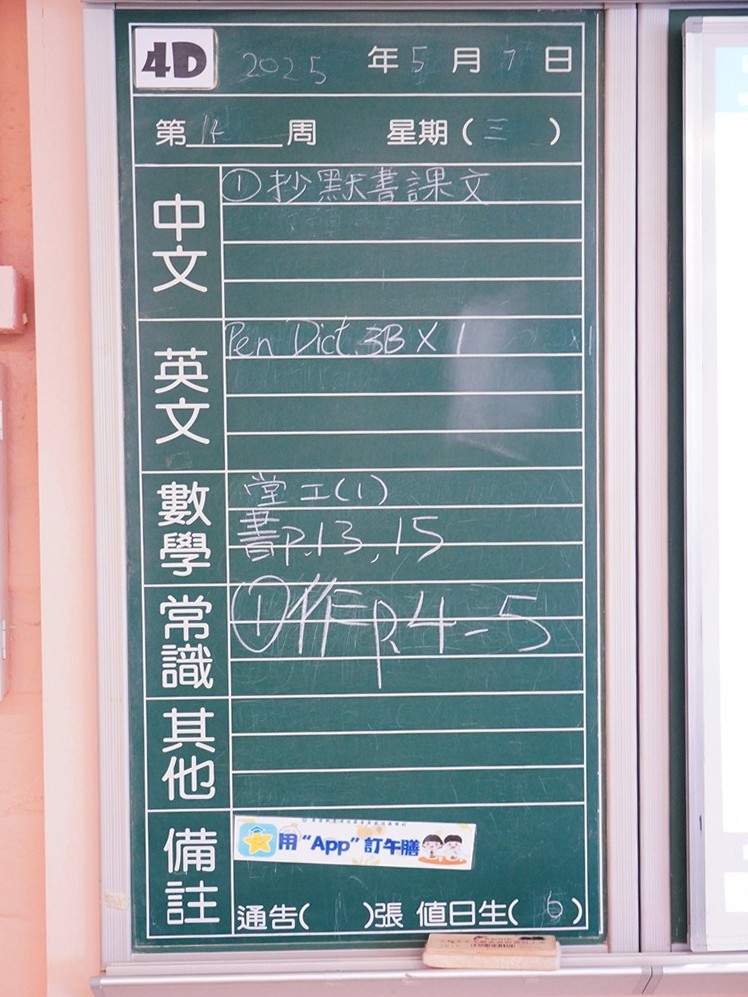 4D 2025 年 5 月 7 日
第 14 周 星期 ( 三 )
中文
①抄默書課文
英文
Pen Dict. 3B X 1
數學
堂工(1)
書p.13, 15
常識
①作p.4-5
其他
備註
用 "App" 訂午膳
通告( )張 值日生( 6 )